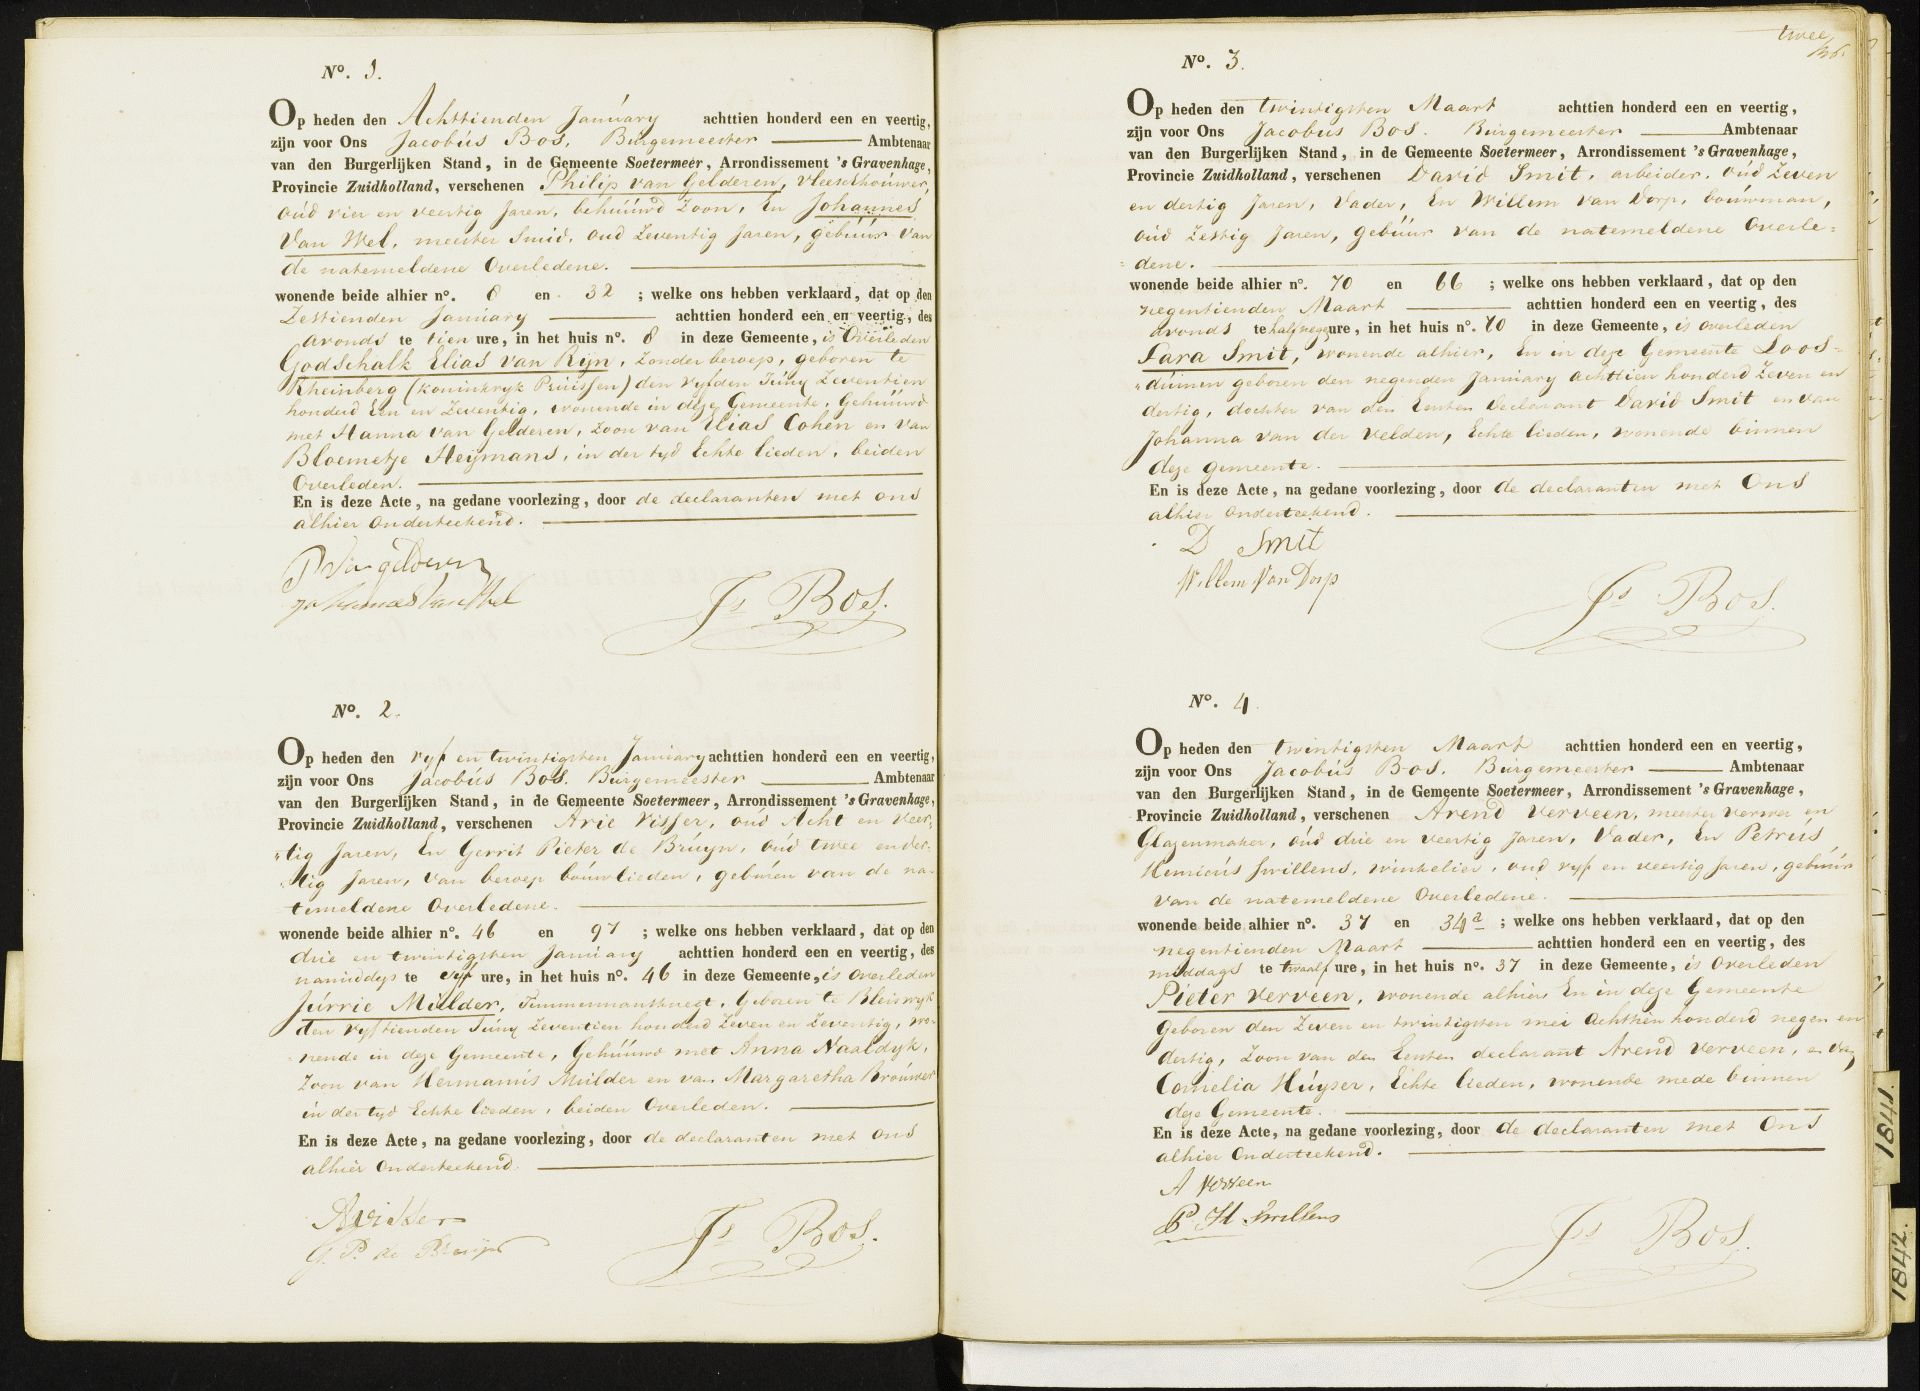 No. 1.
Op heden den Achttienden January achttien honderd een en veertig,
zijn voor Ons Jacobus Bos, Burgemeester Ambtenaar
van den Burgerlijken Stand, in de Gemeente Soetermeer, Arrondissement 's Gravenhage,
Provincie Zuidholland, verschenen Philip van Gelderen, vleeschhouwer,
oud vier en veertig Jaren, behuuwd Zoon, En Johannes
Van Wel, meester Smid, oud Zeventig Jaren, gebuur van
de natemeldene Overledene.
wonende beide alhier no. 8 en 32 ; welke ons hebben verklaard, dat op den
Zestienden January achttien honderd een en veertig, des
avonds te tien ure, in het huis no. 8 in deze Gemeente, is Overleden
Godschalk Elias van Rijn, Zonder beroep, geboren te
Rheinberg (koninkryk Pruissen) den vyfden Juny Zeventien
honderd Een en Zeventig, wonende in deze Gemeente, Gehuuwd
met Hanna van Gelderen, Zoon van Elias Cohen en van
Bloemetje Heymans, in der tyd Echte lieden, beiden
Overleden.
En is deze Acte, na gedane voorlezing, door de declaranten met ons
alhier Onderteekend.
P van gelderen
Johannes van Wel
Js Bos.
No. 2.
Op heden den vyf en twintigsten January achttien honderd een en veertig,
zijn voor Ons Jacobus Bos. Burgemeester Ambtenaar
van den Burgerlijken Stand, in de Gemeente Soetermeer, Arrondissement 's Gravenhage,
Provincie Zuidholland, verschenen Arie Visser, oud Acht en veer-
tig Jaren, En Gerrit Pieter de Bruyn, oud twee en der-
tig Jaren, van beroep bouwlieden, geburen van de na-
temeldene Overledene.
wonende beide alhier no. 46 en 97 ; welke ons hebben verklaard, dat op den
drie en twintigsten January achttien honderd een en veertig, des
namiddags te vyf ure, in het huis no. 46 in deze Gemeente, is Overleden
Jurrie Mulder, Timmermansknegt, Geboren te Bleiswyk
den vyftienden Juny Zeventien honderd Zeven en Zeventig, wo-
nende in deze Gemeente, Gehuuwd met Anna Naaldyk,
Zoon van Hermanus Mulder en van Margaretha Brouwer
in der tyd Echte lieden, beiden Overleden.
En is deze Acte, na gedane voorlezing, door de declaranten met ons
alhier Onderteekend.
A visser
G. P. de Bruijn
Js Bos.
twee
No. 3.
Op heden den twintigsten Maart achttien honderd een en veertig,
zijn voor Ons Jacobus Bos. Burgemeester Ambtenaar
van den Burgerlijken Stand, in de Gemeente Soetermeer, Arrondissement 's Gravenhage,
Provincie Zuidholland, verschenen David Smit, arbeider, oud Zeven
en dertig Jaren, Vader, En Willem van Dorp, bouwman,
oud Zestig Jaren, gebuur van de natemeldene Overle-
dene.
wonende beide alhier no. 70 en 66 ; welke ons hebben verklaard, dat op den
negentienden Maart achttien honderd een en veertig, des
avonds te half negen ure, in het huis no. 70 in deze Gemeente, is overleden
Sara Smit, wonende alhier, En in deze Gemeente Loos-
duinen geboren den negenden January achttien honderd Zeven en
dertig, dochter van den Eersten Declarant David Smit en van
Johanna van der Velden, Echte lieden, wonende binnen
deze gemeente.
En is deze Acte, na gedane voorlezing, door de declaranten met Ons
alhier Onderteekend.
D Smit
Willem Van Dorp
Js Bos.
No. 4
Op heden den twintigsten Maart achttien honderd een en veertig,
zijn voor Ons Jacobus Bos. Burgemeester Ambtenaar
van den Burgerlijken Stand, in de Gemeente Soetermeer, Arrondissement 's Gravenhage,
Provincie Zuidholland, verschenen Arend Verveen, meester Verwer en
Glazenmaker, oud drie en veertig Jaren, Vader, En Petrus
Henricus Swillens, winkelier, oud vyf en veertig Jaren, gebuur
van de natemeldene Overledene.
wonende beide alhier no. 37 en 34a ; welke ons hebben verklaard, dat op den
negentienden Maart achttien honderd een en veertig, des
middags te twaalf ure, in het huis no. 37 in deze Gemeente, is Overleden
Pieter Verveen, wonende alhier En in deze Gemeente
Geboren den Zeven en twintigsten mei Achttien honderd negen en
dertig, Zoon van den Eersten declarant Arend Verveen, en van
Cornelia Huyser, Echte lieden, wonende mede binnen
deze Gemeente.
En is deze Acte, na gedane voorlezing, door de declaranten met Ons
alhier Onderteekend.
A Verveen
P. H Swillens
Js Bos.
1841.
1842.